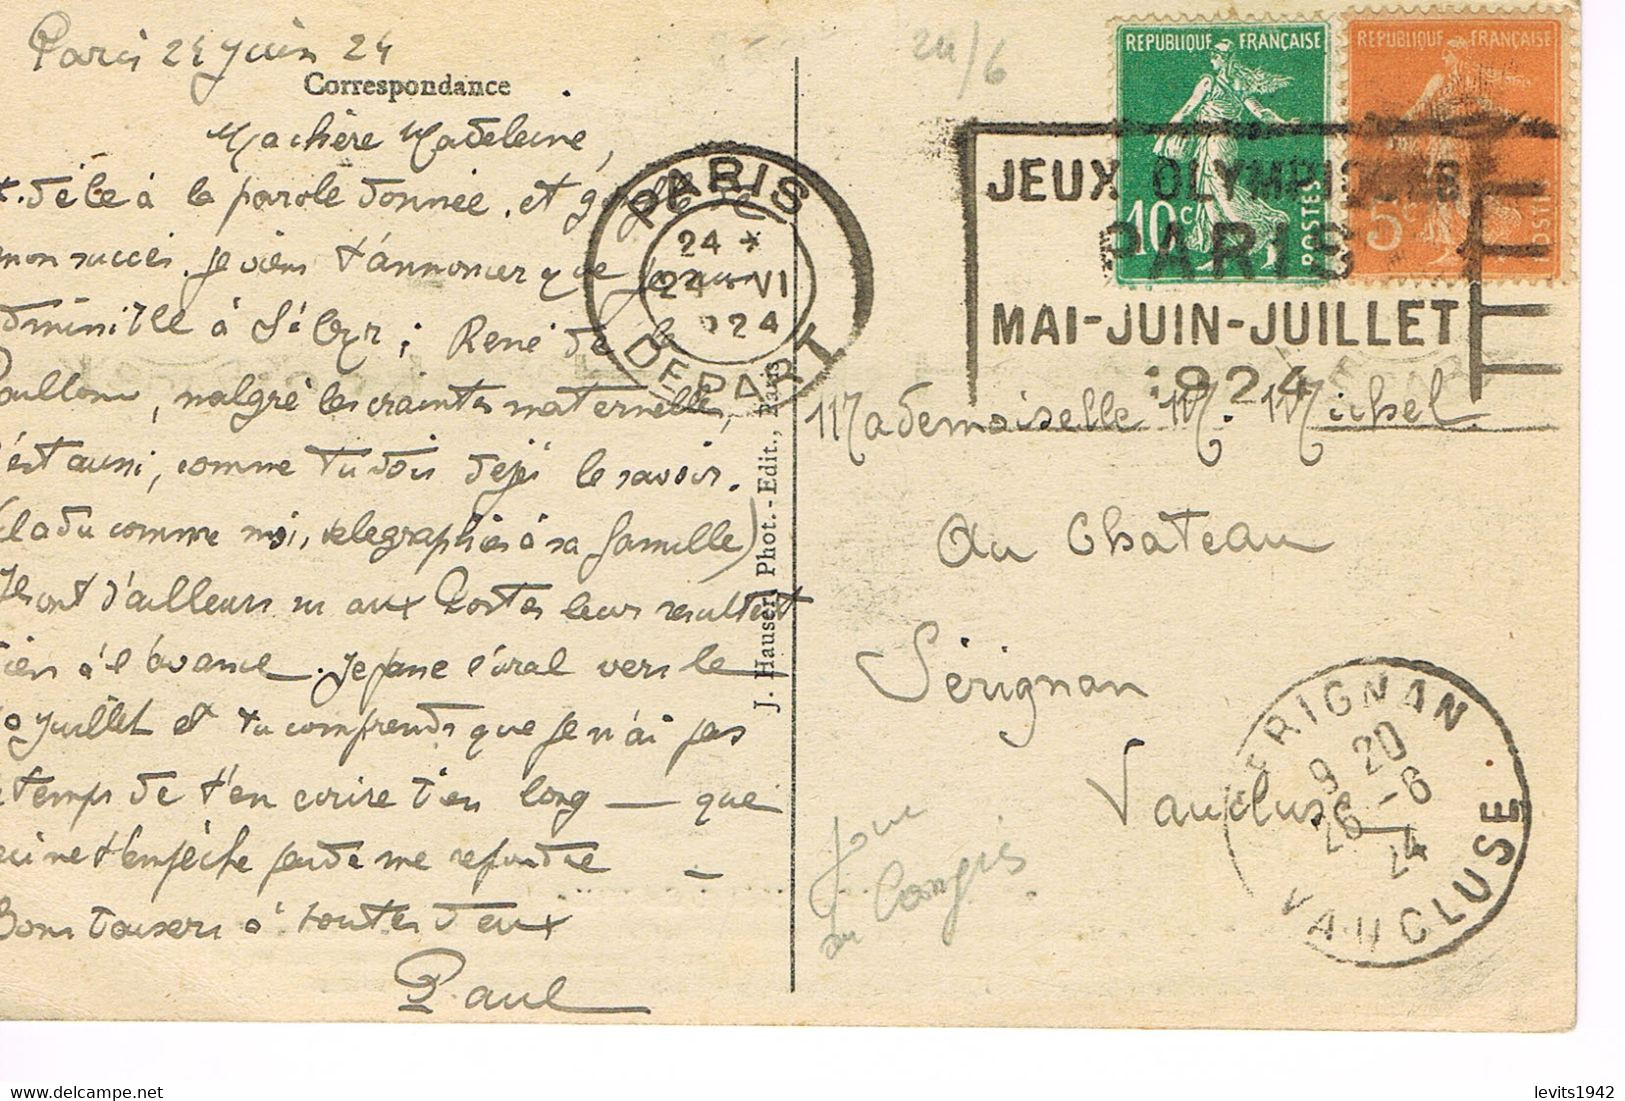 Paris 24 juin 24
24/6
Correspondance
Ma chère Madeleine,
fidèle à la parole donnée, et
mon succès. Je viens t'annoncer que je suis
dmissible à St Cyr ; René de
aillon, malgré les craintes maternelles,
'est aussi, comme tu dois déjà le savoir.
(il a dû comme moi, télégraphier à sa famille)
Ils ont d'ailleurs vu aux Postes leur résultat
bien à l'avance. Je passe l'oral vers le
10 juillet et tu comprends que je n'ai pas
temps de t'en écrire bien long — que
ceci ne t'empêche pas de me répondre —
Bons baisers à toutes deux
Paul
J. Hauser, Phot.-Edit., Paris
PARIS
24 *
24 VI
924
DEPART
REPUBLIQUE FRANÇAISE
10c
POSTES
REPUBLIQUE FRANÇAISE
5c
POSTES
JEUX OLYMPIQUES
PARIS
MAI-JUIN-JUILLET
1924
Mademoiselle M. Michel
Au Chateau
Sérignan
Vaucluse
SERIGNAN
9 20
26 -6
24
VAUCLUSE
levits1942